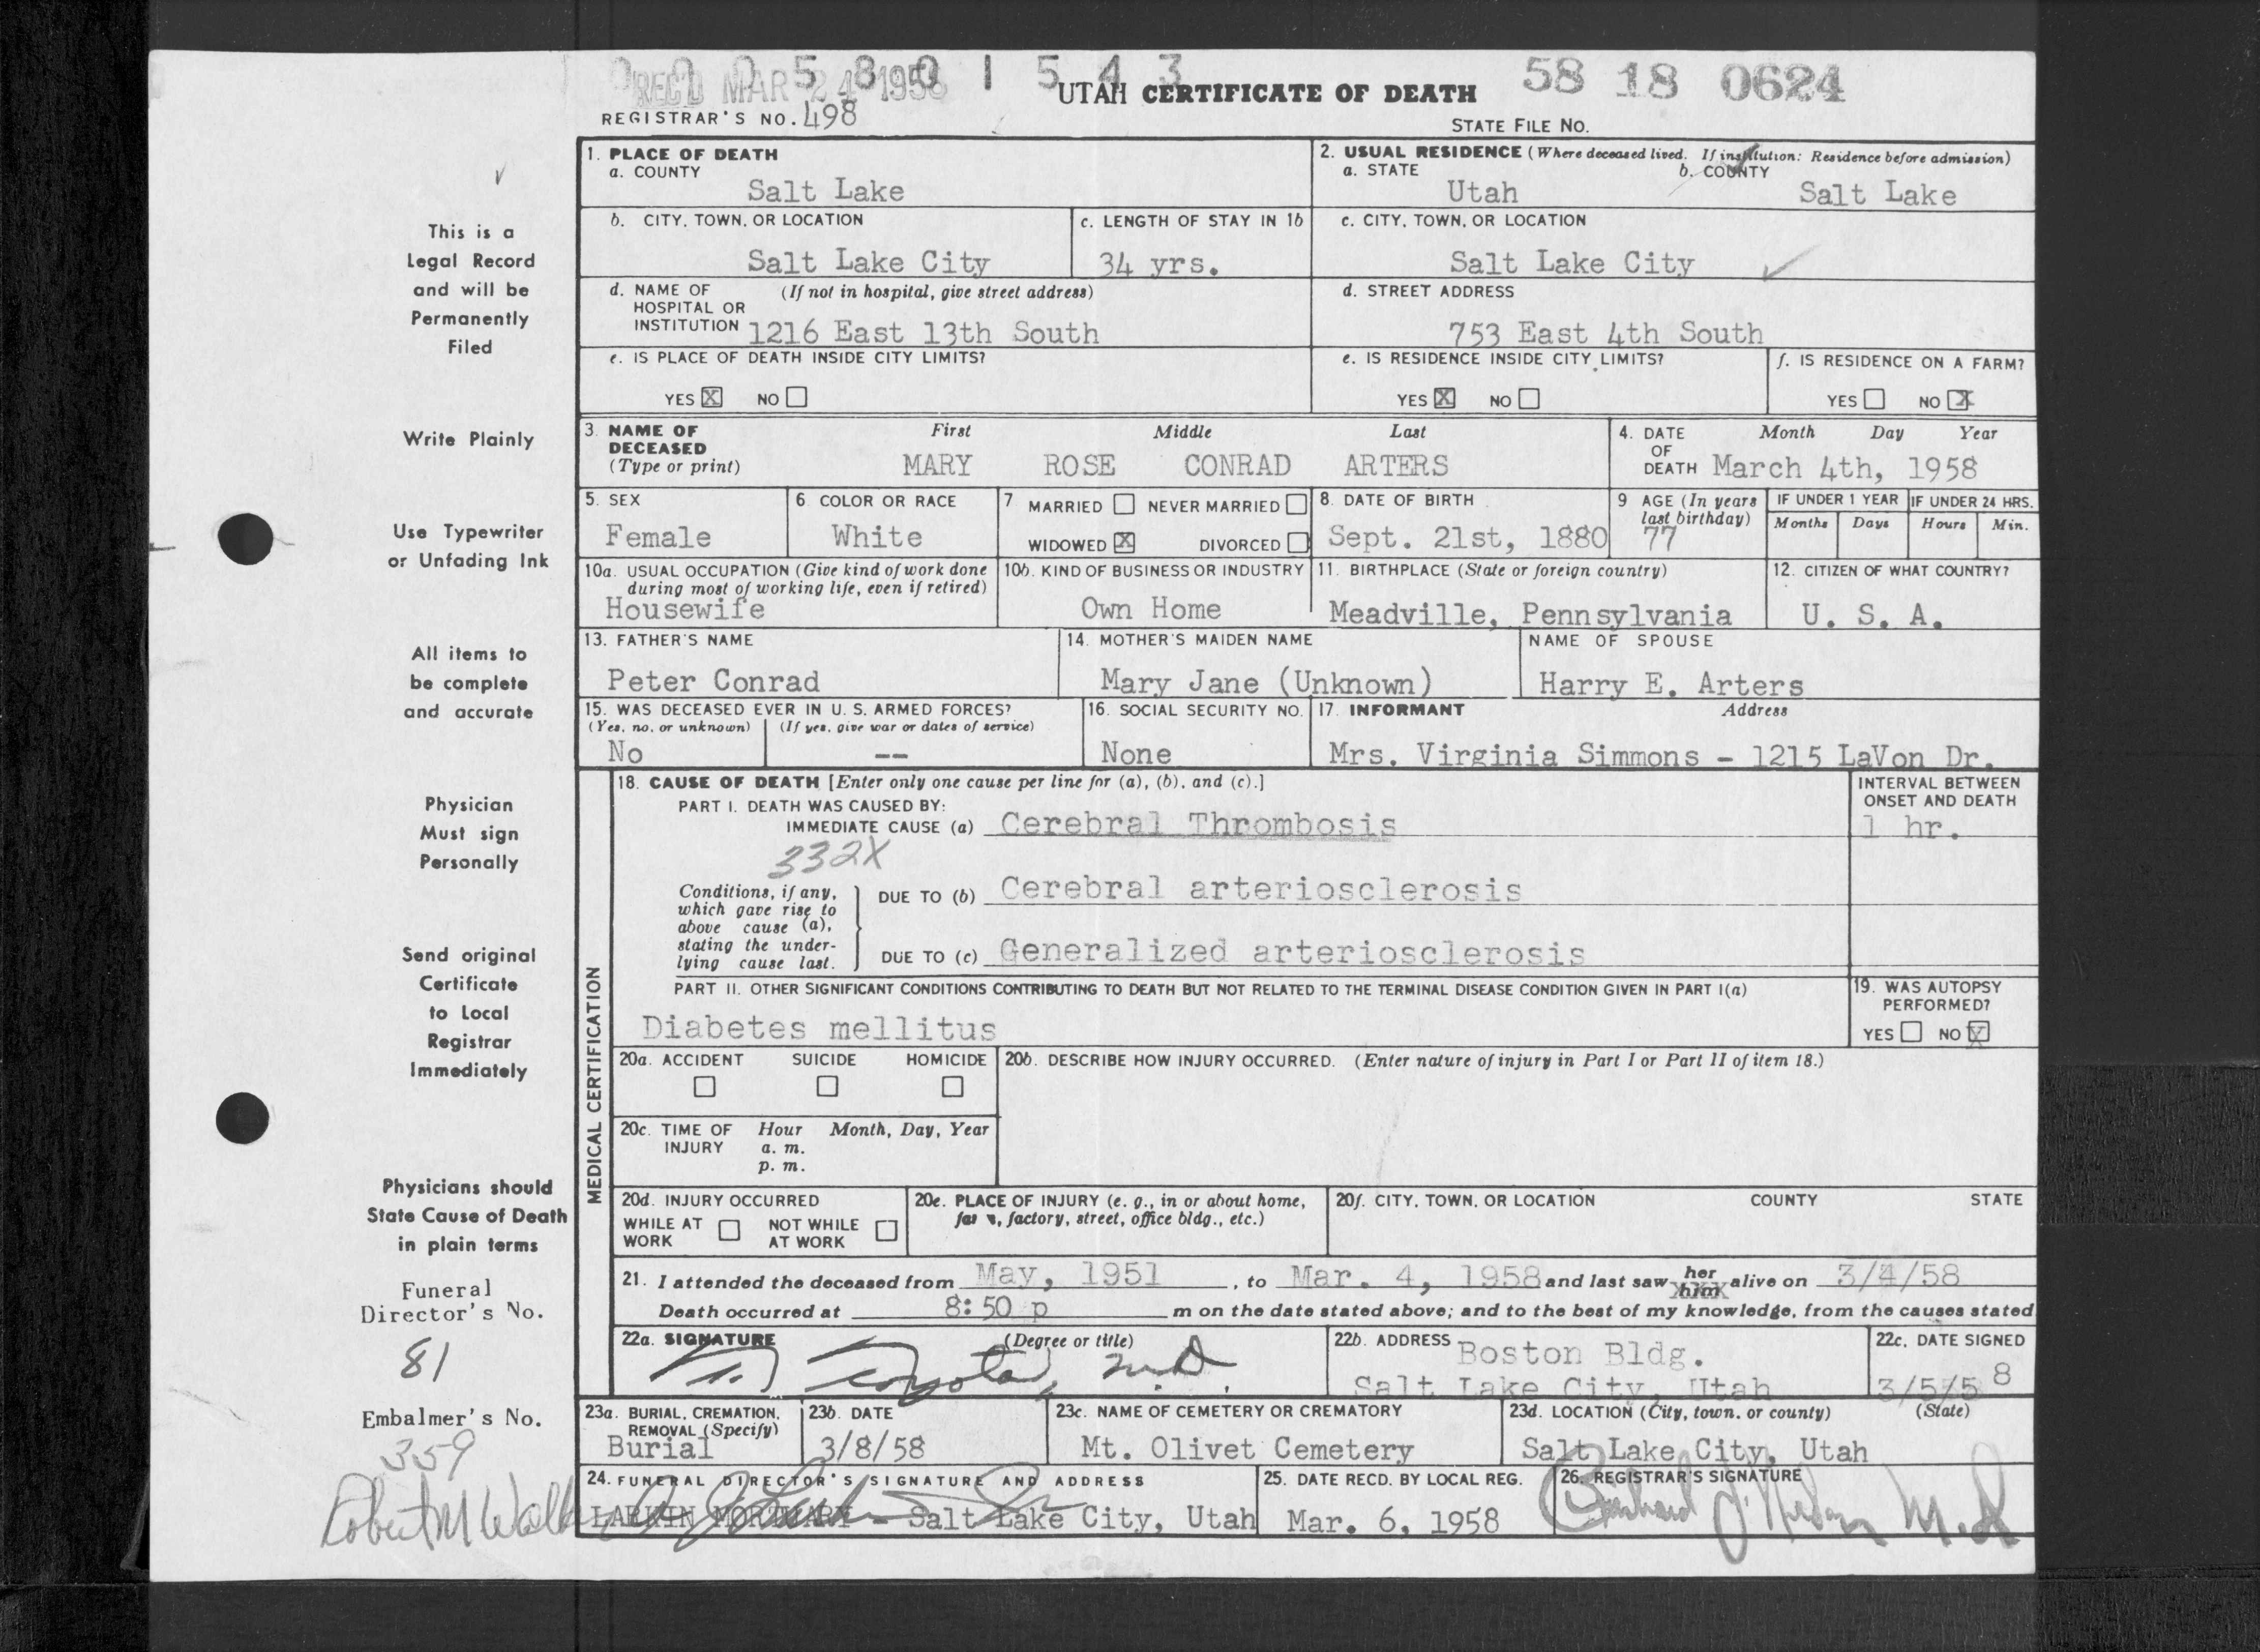 REC'D MAR 24 1958
58 18 0624
UTAH CERTIFICATE OF DEATH
REGISTRAR'S NO. 498
STATE FILE NO.
1. PLACE OF DEATH
a. COUNTY
Salt Lake
2. USUAL RESIDENCE (Where deceased lived. If institution: Residence before admission)
a. STATE b. COUNTY
Utah Salt Lake
b. CITY, TOWN, OR LOCATION
Salt Lake City
c. LENGTH OF STAY IN 1b
34 yrs.
c. CITY, TOWN, OR LOCATION
Salt Lake City
d. NAME OF (If not in hospital, give street address)
HOSPITAL OR
INSTITUTION 1216 East 13th South
d. STREET ADDRESS
753 East 4th South
e. IS PLACE OF DEATH INSIDE CITY LIMITS?
YES X NO
e. IS RESIDENCE INSIDE CITY LIMITS?
YES X NO
f. IS RESIDENCE ON A FARM?
YES NO X
3. NAME OF First Middle Last
DECEASED
(Type or print) MARY ROSE CONRAD ARTERS
4. DATE Month Day Year
OF
DEATH March 4th, 1958
5. SEX
Female
6 COLOR OR RACE
White
7 MARRIED NEVER MARRIED
WIDOWED X DIVORCED
8. DATE OF BIRTH
Sept. 21st, 1880
9 AGE (In years
last birthday)
77
IF UNDER 1 YEAR
Months Days
IF UNDER 24 HRS.
Hours Min.
10a. USUAL OCCUPATION (Give kind of work done
during most of working life, even if retired)
Housewife
10b. KIND OF BUSINESS OR INDUSTRY
Own Home
11. BIRTHPLACE (State or foreign country)
Meadville, Pennsylvania
12. CITIZEN OF WHAT COUNTRY?
U. S. A.
13. FATHER'S NAME
Peter Conrad
14. MOTHER'S MAIDEN NAME
Mary Jane (Unknown)
NAME OF SPOUSE
Harry E. Arters
15. WAS DECEASED EVER IN U. S. ARMED FORCES?
(Yes, no, or unknown) (If yes, give war or dates of service)
No --
16. SOCIAL SECURITY NO.
None
17. INFORMANT Address
Mrs. Virginia Simmons - 1215 LaVon Dr.
MEDICAL CERTIFICATION
18. CAUSE OF DEATH [Enter only one cause per line for (a), (b), and (c).]
PART I. DEATH WAS CAUSED BY:
IMMEDIATE CAUSE (a) Cerebral Thrombosis
332X
INTERVAL BETWEEN
ONSET AND DEATH
1 hr.
Conditions, if any,
which gave rise to
above cause (a),
stating the under-
lying cause last.
DUE TO (b) Cerebral arteriosclerosis
DUE TO (c) Generalized arteriosclerosis
PART II. OTHER SIGNIFICANT CONDITIONS CONTRIBUTING TO DEATH BUT NOT RELATED TO THE TERMINAL DISEASE CONDITION GIVEN IN PART I(a)
Diabetes mellitus
19. WAS AUTOPSY
PERFORMED?
YES NO X
20a. ACCIDENT SUICIDE HOMICIDE
20b. DESCRIBE HOW INJURY OCCURRED. (Enter nature of injury in Part I or Part II of item 18.)
20c. TIME OF Hour Month, Day, Year
INJURY a. m.
p. m.
20d. INJURY OCCURRED
WHILE AT NOT WHILE
WORK AT WORK
20e. PLACE OF INJURY (e. g., in or about home,
factory, street, office bldg., etc.)
20f. CITY, TOWN, OR LOCATION COUNTY STATE
21. I attended the deceased from May, 1951, to Mar. 4, 1958 and last saw her him alive on 3/4/58
Death occurred at 8:50 p m on the date stated above; and to the best of my knowledge, from the causes stated
22a. SIGNATURE (Degree or title)
M.D.
22b. ADDRESS Boston Bldg.
Salt Lake City, Utah
22c. DATE SIGNED
3/5/58
23a. BURIAL, CREMATION,
REMOVAL (Specify)
Burial
23b. DATE
3/8/58
23c. NAME OF CEMETERY OR CREMATORY
Mt. Olivet Cemetery
23d. LOCATION (City, town, or county) (State)
Salt Lake City, Utah
24. FUNERAL DIRECTOR'S SIGNATURE AND ADDRESS
LARKIN MORTUARY - Salt Lake City, Utah
25. DATE RECD. BY LOCAL REG.
Mar. 6, 1958
26. REGISTRAR'S SIGNATURE
M.D.
This is a
Legal Record
and will be
Permanently
Filed
Write Plainly
Use Typewriter
or Unfading Ink
All items to
be complete
and accurate
Physician
Must sign
Personally
Send original
Certificate
to Local
Registrar
Immediately
Physicians should
State Cause of Death
in plain terms
Funeral
Director's No.
81
Embalmer's No.
359
Robert M Walk